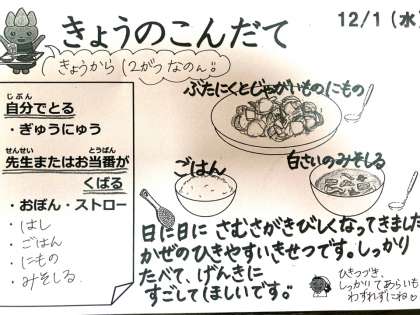 きょうのこんだて
12/1(水)
きょうから12がつなのん。
自分でとる
じぶん
・ぎゅうにゅう
先生またはお当番が
せんせい
とうばん
くばる
・おぼん・ストロー
・はし
・ごはん
・にもの
・みそしる
ぶたにくとじゃがいものにもの
ごはん
白さいのみそしる
日に日に さむさがきびしくなってきました
かぜのひきやすいきせつです。しっかり
たべて、げんきに
すごしてほしいです。
ひきつづき、
しっかりてあらいも
わすれずにね